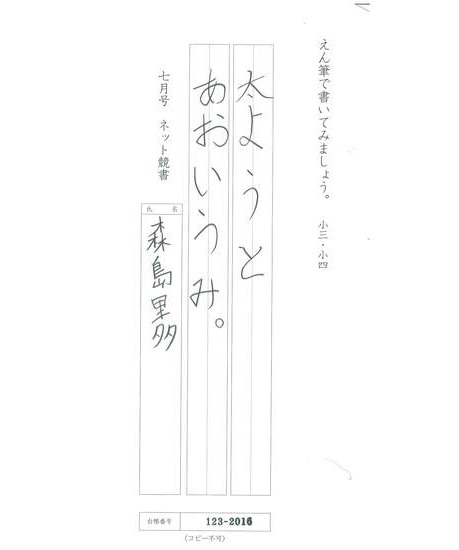 えん筆で書いてみましょう。 小三・小四
太ようと
あおいうみ。
七月号 ネット競書
氏名
森島里多
台帳番号 123-2016
(コピー不可)